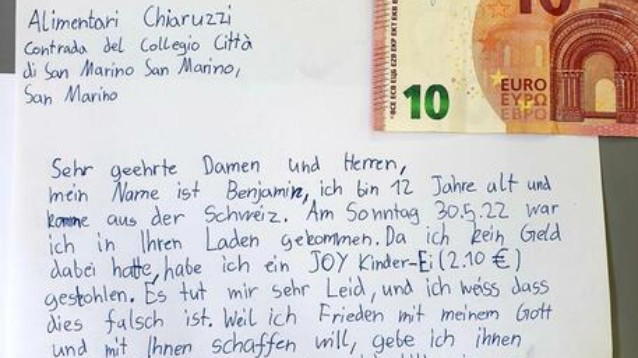 Alimentari Chiaruzzi
Contrada del Collegio Città
di San Marino San Marino,
San Marino
10
10
EURO
ΕΥΡΩ
ЕВРО
Sehr geehrte Damen und Herren,
mein Name ist Benjamin, ich bin 12 Jahre alt und
komme aus der Schweiz. Am Sonntag 30.5.22 war
ich in Ihren Laden gekommen. Da ich kein Geld
dabei hatte, habe ich ein JOY Kinder-Ei (2.10 €)
gestohlen. Es tut mir sehr Leid, und ich weiss dass
dies falsch ist. Weil ich Frieden mit meinem Gott
und mit Ihnen schaffen will, gebe ich ihnen